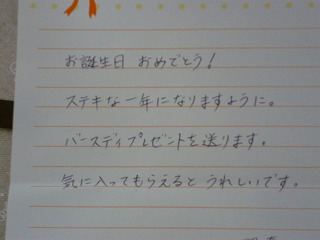 お誕生日 おめでとう!
ステキな一年になりますように。
バースディプレゼントを送ります。
気に入ってもらえると うれしいです。